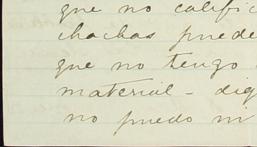 que no calific
chachas puede
que no tengo
material - dig
no puedo ni